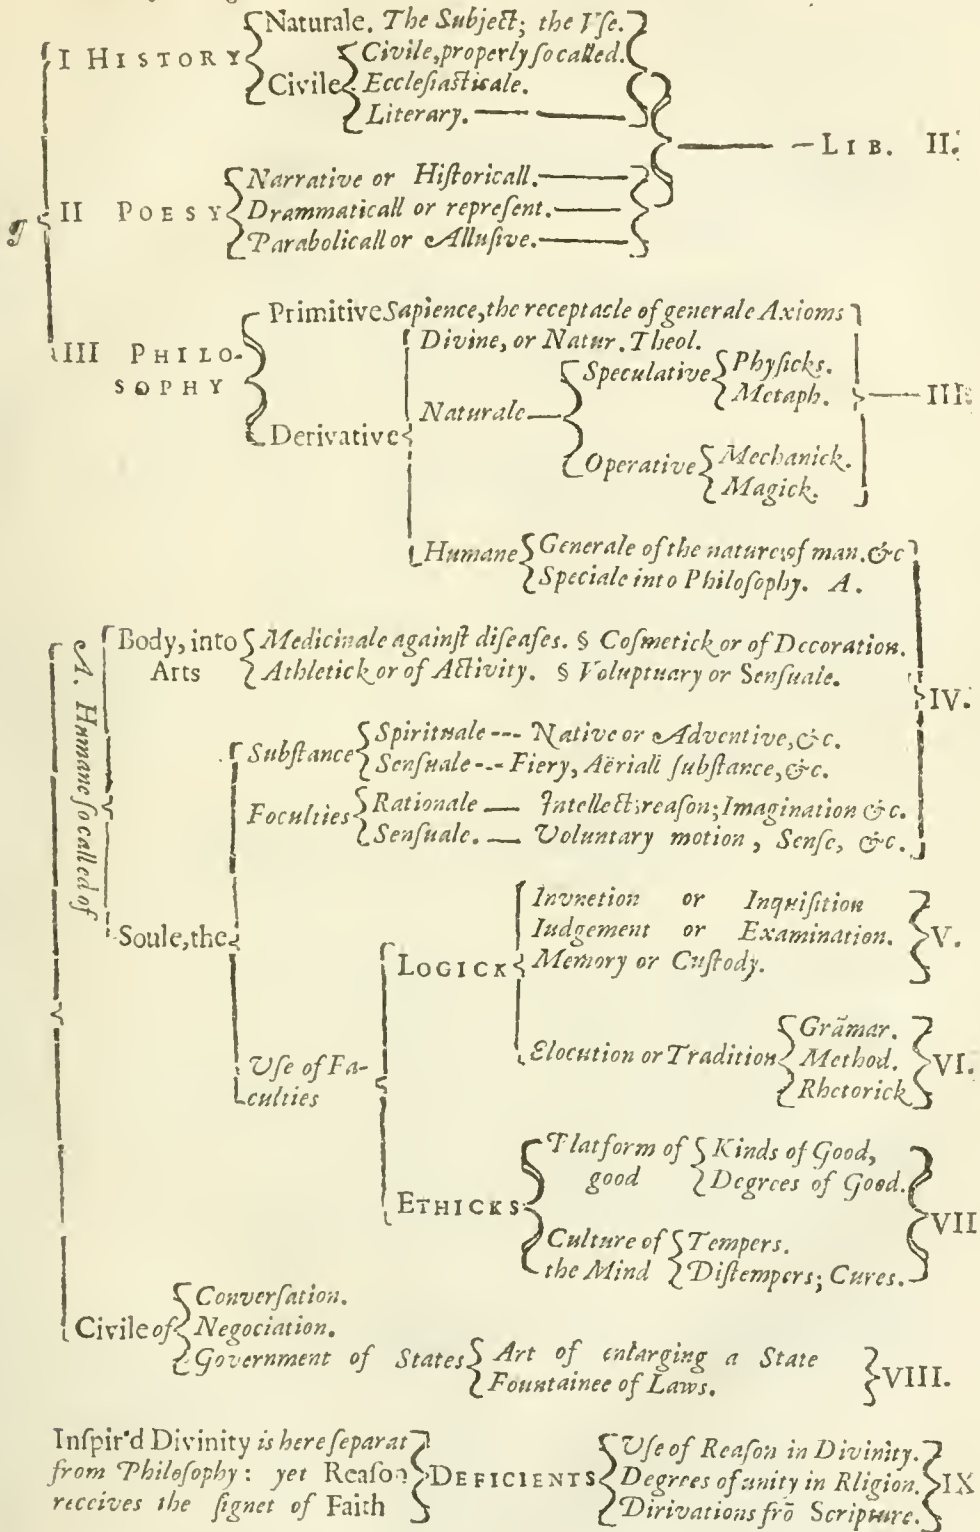 Naturale. The Subject; the Uſe.
I HISTORY
Civile, properly ſo called.
Civile
Eccleſiaſticale.
Literary.
LIB. II.
Narrative or Hiſtoricall.
II POESY
Drammaticall or repreſent.
Parabolicall or Alluſive.
Primitive Sapience, the receptacle of generale Axioms
III PHILO-
SOPHY
Divine, or Natur. Theol.
Speculative
Phyſicks.
Metaph.
III.
Naturale
Derivative
Operative
Mechanick.
Magick.
Humane
Generale of the nature of man. &c
Speciale into Philoſophy. A.
A. Humane ſo called of
Body, into
Arts
Medicinale againſt diſeaſes. § Coſmetick or of Decoration.
Athletick or of Activity. § Voluptuary or Senſuale.
IV.
Subſtance
Spirituale --- Native or Adventive, &c.
Senſuale --- Fiery, Aëriall ſubſtance, &c.
Foculties
Rationale — Intellect: reaſon; Imagination &c.
Senſuale. — Voluntary motion, Senſe, &c.
Soule, the
Invnetion or Inquiſition
Iudgement or Examination.
V.
LOGICK
Memory or Cuſtody.
Elocution or Tradition
Grãmar.
Method.
Rhetorick
VI.
Uſe of Fa-
culties
Platform of
good
Kinds of Good,
Degrees of Good.
ETHICKS
VII
Culture of
the Mind
Tempers.
Diſtempers; Cures.
Civile of
Converſation.
Negociation.
Government of States
Art of enlarging a State
Fountainee of Laws.
VIII.
Inſpir'd Divinity is here ſeparat
from Philoſophy: yet Reaſon
receives the ſignet of Faith
DEFICIENTS
Uſe of Reaſon in Divinity.
Degrees of unity in Rligion.
Dirivations frõ Scripture.
IX